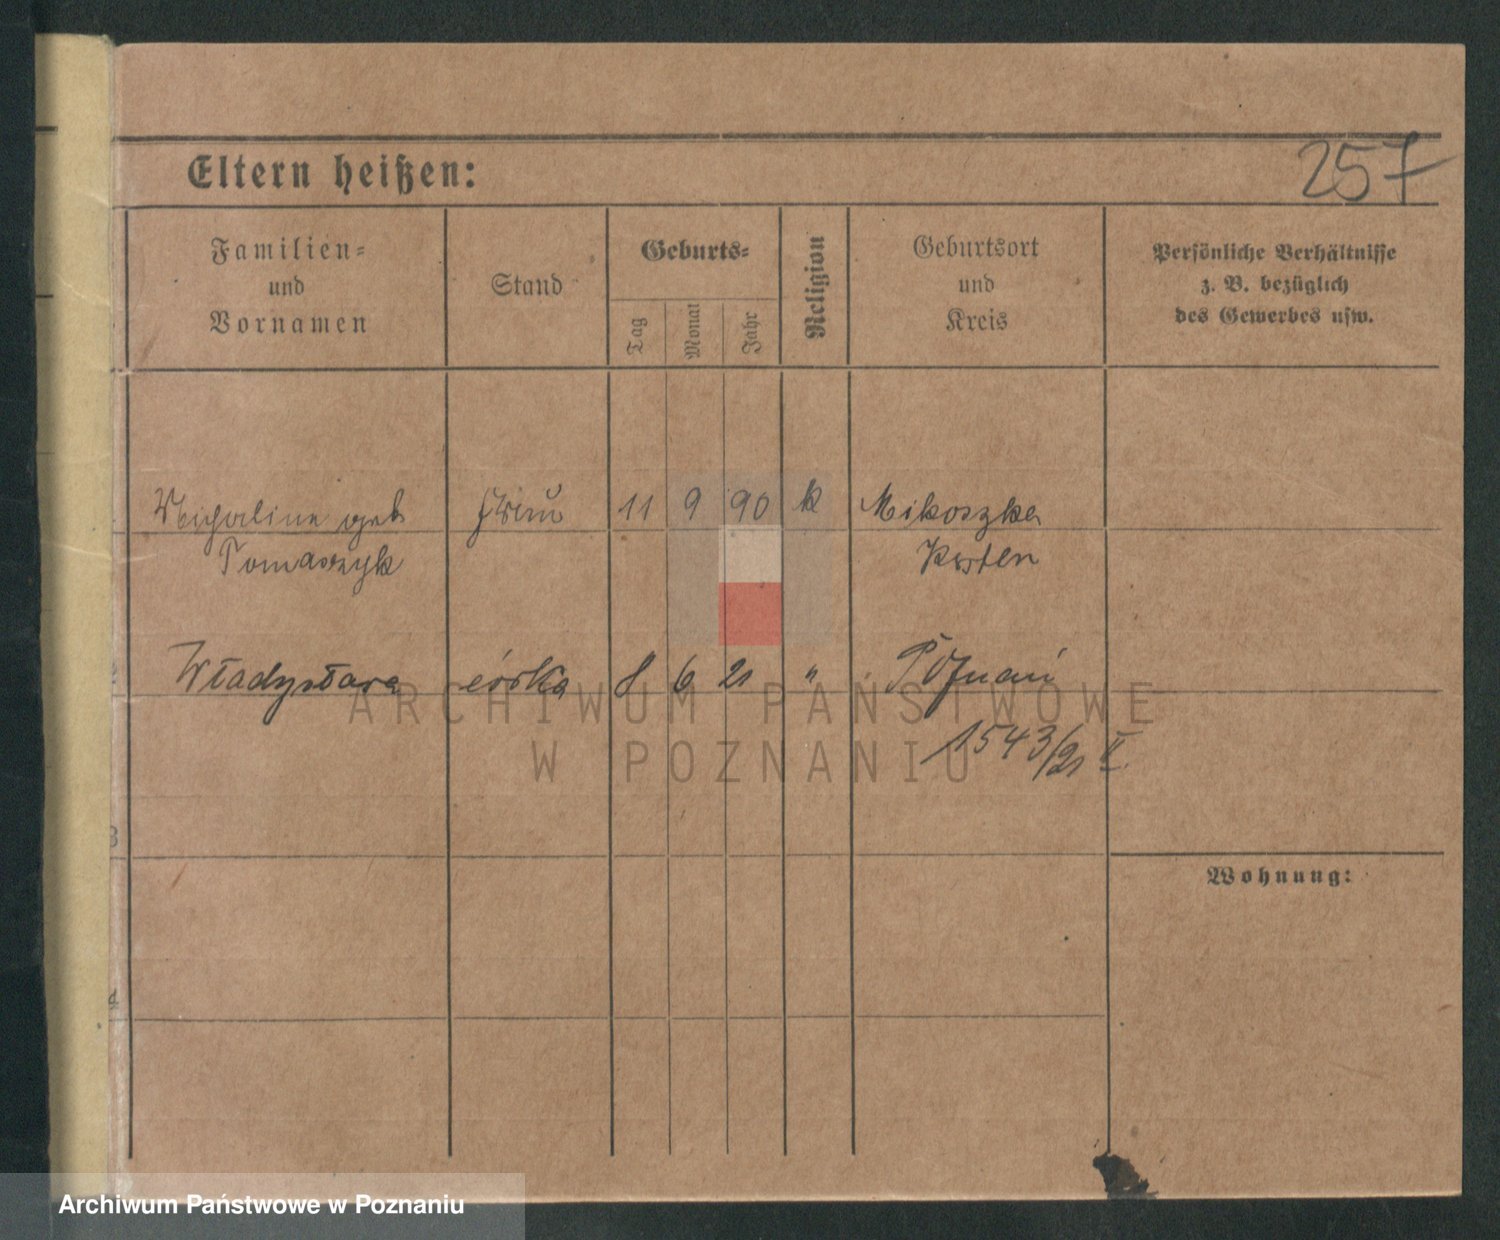 257
Eltern heißen:
Familien-
und
Vornamen
Stand
Geburts-
Tag
Monat
Jahr
Religion
Geburtsort
und
Kreis
Persönliche Verhältnisse
z. B. bezüglich
des Gewerbes usw.
geb Frau 11 9 90 k Mikoszka
Tomaszyk Kosten
Władysława córka 8 6 21 " Poznań
1543/21 II.
3
Wohnung:
4
ARCHIWUM PAŃSTWOWE
W POZNANIU
Archiwum Państwowe w Poznaniu